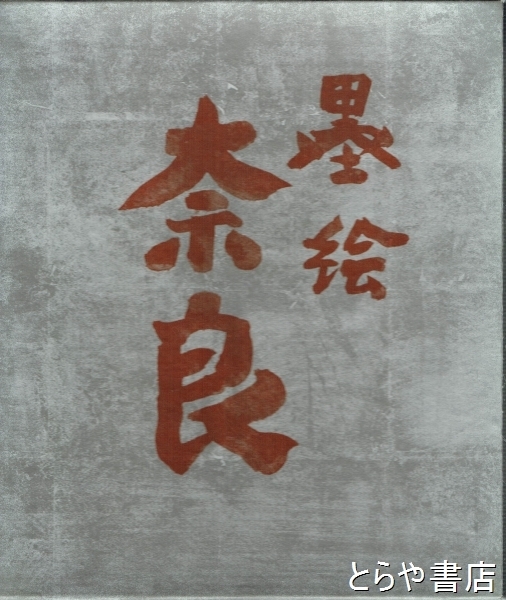 墨绘
奈良
とらや書店